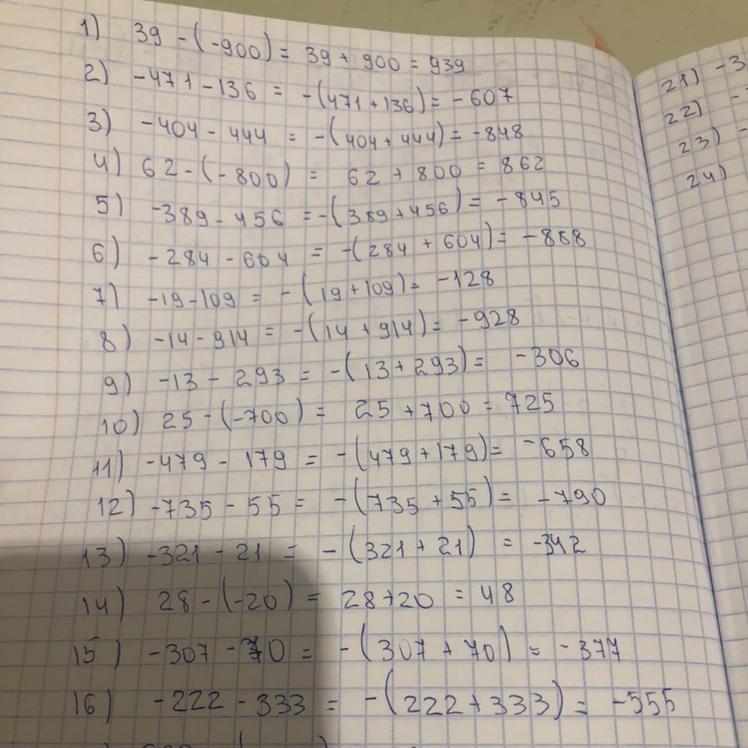 1) 39 - (-900) = 39 + 900 = 939
2) -471 - 136 = -(471+136) = -607
3) -404 - 444 = -(404+444) = -848
4) 62 - (-800) = 62 + 800 = 862
5) -389 - 456 = -(389+456) = -845
6) -284 - 604 = -(284 + 604) = -888
7) -19-109 = -(19+109) = -128
8) -14-914 = -(14+914) = -928
9) -13 - 293 = -(13+293) = -306
10) 25 - (-700) = 25 + 700 = 725
11) -479 - 179 = -(479+179) = -658
12) -735 - 55 = -(735 + 55) = -790
13) -321 - 21 = -(321 + 21) = -342
14) 28 - (-20) = 28+20 = 48
15) -307 - 70 = -(307 + 70) = -377
16) -222 - 333 = -(222+333) = -555
21) -3
22) -
23) -
24)